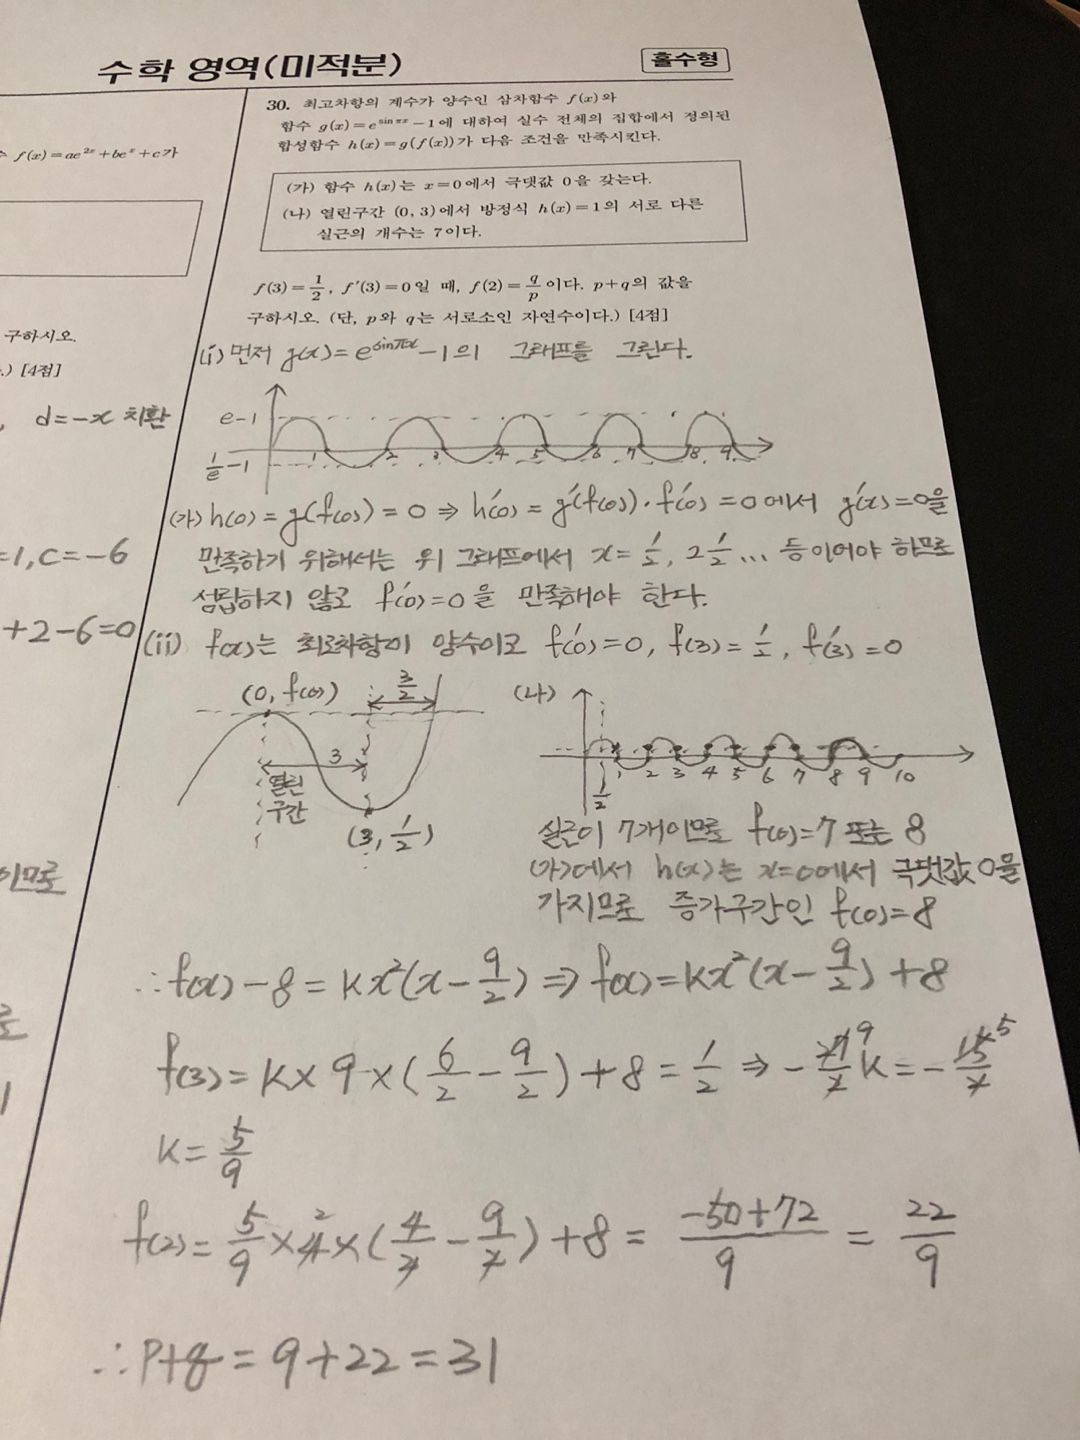 수학 영역(미적분)
홀수형
f(x)=ae^{2x}+be^x+c가
구하시오.
.) [4점]
, d=-x 치환
=1, c=-6
+2-6=0
이므로
30. 최고차항의 계수가 양수인 삼차함수 f(x)와
함수 g(x)=e^{sin πx}-1에 대하여 실수 전체의 집합에서 정의된
합성함수 h(x)=g(f(x))가 다음 조건을 만족시킨다.
(가) 함수 h(x)는 x=0에서 극댓값 0을 갖는다.
(나) 열린구간 (0, 3)에서 방정식 h(x)=1의 서로 다른
실근의 개수는 7이다.
f(3)=1/2, f'(3)=0일 때, f(2)=q/p이다. p+q의 값을
구하시오. (단, p와 q는 서로소인 자연수이다.) [4점]
(i) 먼저 g(x)=e^{sinπx}-1의 그래프를 그린다.
e-1
1/e-1
1 2 3 4 5 6 7 8 9
(가) h(0)=g(f(0))=0 ⇒ h'(0)=g'(f(0))·f'(0)=0에서 g'(x)=0을
만족하기 위해서는 위 그래프에서 x=1/2, 2 1/2 ... 등이어야 하므로
성립하지 않고 f'(0)=0을 만족해야 한다.
(ii) f(x)는 최고차항이 양수이고 f'(0)=0, f(3)=1/2, f'(3)=0
(0, f(0))
3/2
3
열린
구간
(3, 1/2)
(나)
1 2 3 4 5 6 7 8 9 10
1/2
실근이 7개이므로 f(0)=7 또는 8
(가)에서 h(x)는 x=0에서 극댓값 0을
가지므로 증가구간인 f(0)=8
∴f(x)-8=kx²(x-9/2) ⇒ f(x)=kx²(x-9/2)+8
f(3)=k×9×(6/2-9/2)+8=1/2 ⇒ -27/2 k=-15/2
k=5/9
f(2)=5/9×4×(4/2-9/2)+8=(-50+72)/9=22/9
∴p+q=9+22=31